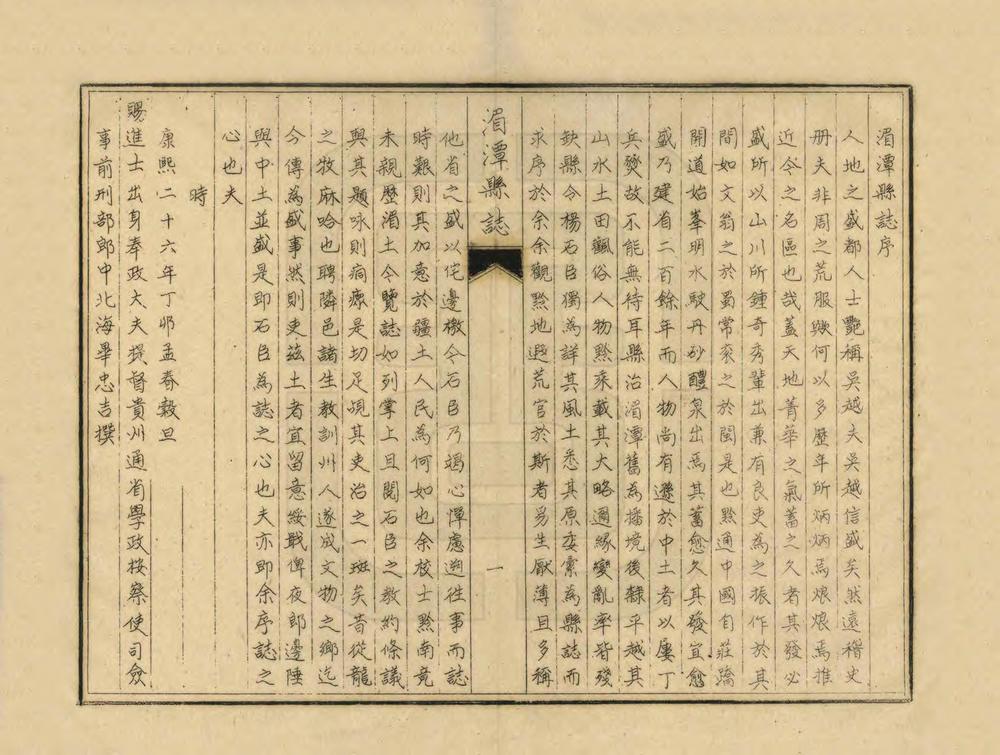 湄潭縣誌序
人地之盛都人士艷稱吳越夫吳越信盛矣然遠稽史
册夫非周之荒服歟何以多歷年所炳炳焉烺烺焉推
近今之名區也哉蓋天地菁華之氣蓄之久者其發必
盛所以山川所鍾奇秀輩出兼有良吏為之振作於其
間如文翁之於蜀常衮之於閩是也黔通中國自莊蹻
開道始峯明水駛丹砂醴泉出焉其蓄愈久其發宜愈
盛乃建省二百餘年而人物尚有遜於中土者以屢丁
兵燹故不能無待耳縣治湄潭舊為播境後隸平越其
山水土田風俗人物黔乘載其大略迺緣變亂率皆殘
缺縣令楊石臣獨為詳其風土悉其原委彙為縣誌而
求序於余余觀黔地遐荒官於斯者另生厭薄且多稱
湄潭縣誌
一
他省之盛以侘邊檄今石臣乃竭心憚慮遡往事而誌
時艱則其加意於疆土人民為何如也余校士黔南竟
未親歷湄土今覽誌如列掌上且閱石臣之教約條議
與其題咏則痌瘝是切足覘其吏治之一斑矣昔從龍
之牧麻哈也聘隣邑諸生教訓州人遂成文物之鄉迄
今傳為盛事然則吏茲土者宜留意綏戢俾夜郎邊陲
與中土並盛是即石臣為誌之心也夫亦即余序誌之
心也夫
時
康熙二十六年丁卯孟春穀旦
賜進士出身奉政大夫提督貴州通省學政按察使司僉
事前刑部郎中北海畢忠吉撰